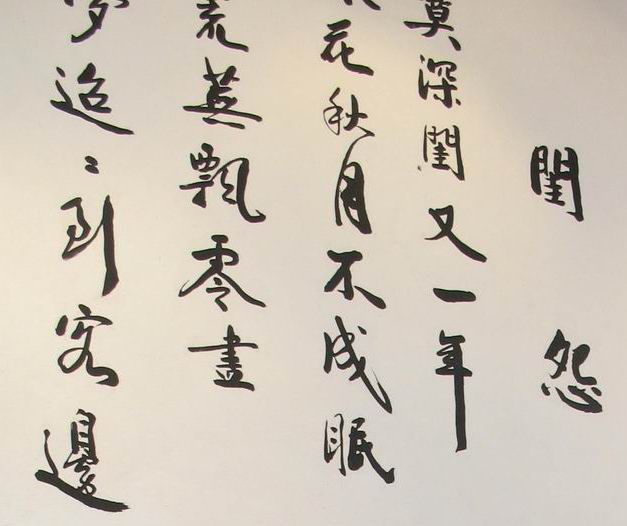 閨怨
莫深閨又一年
花秋月不成眠
荒蕪飄零盡
夢迢〻到客邊